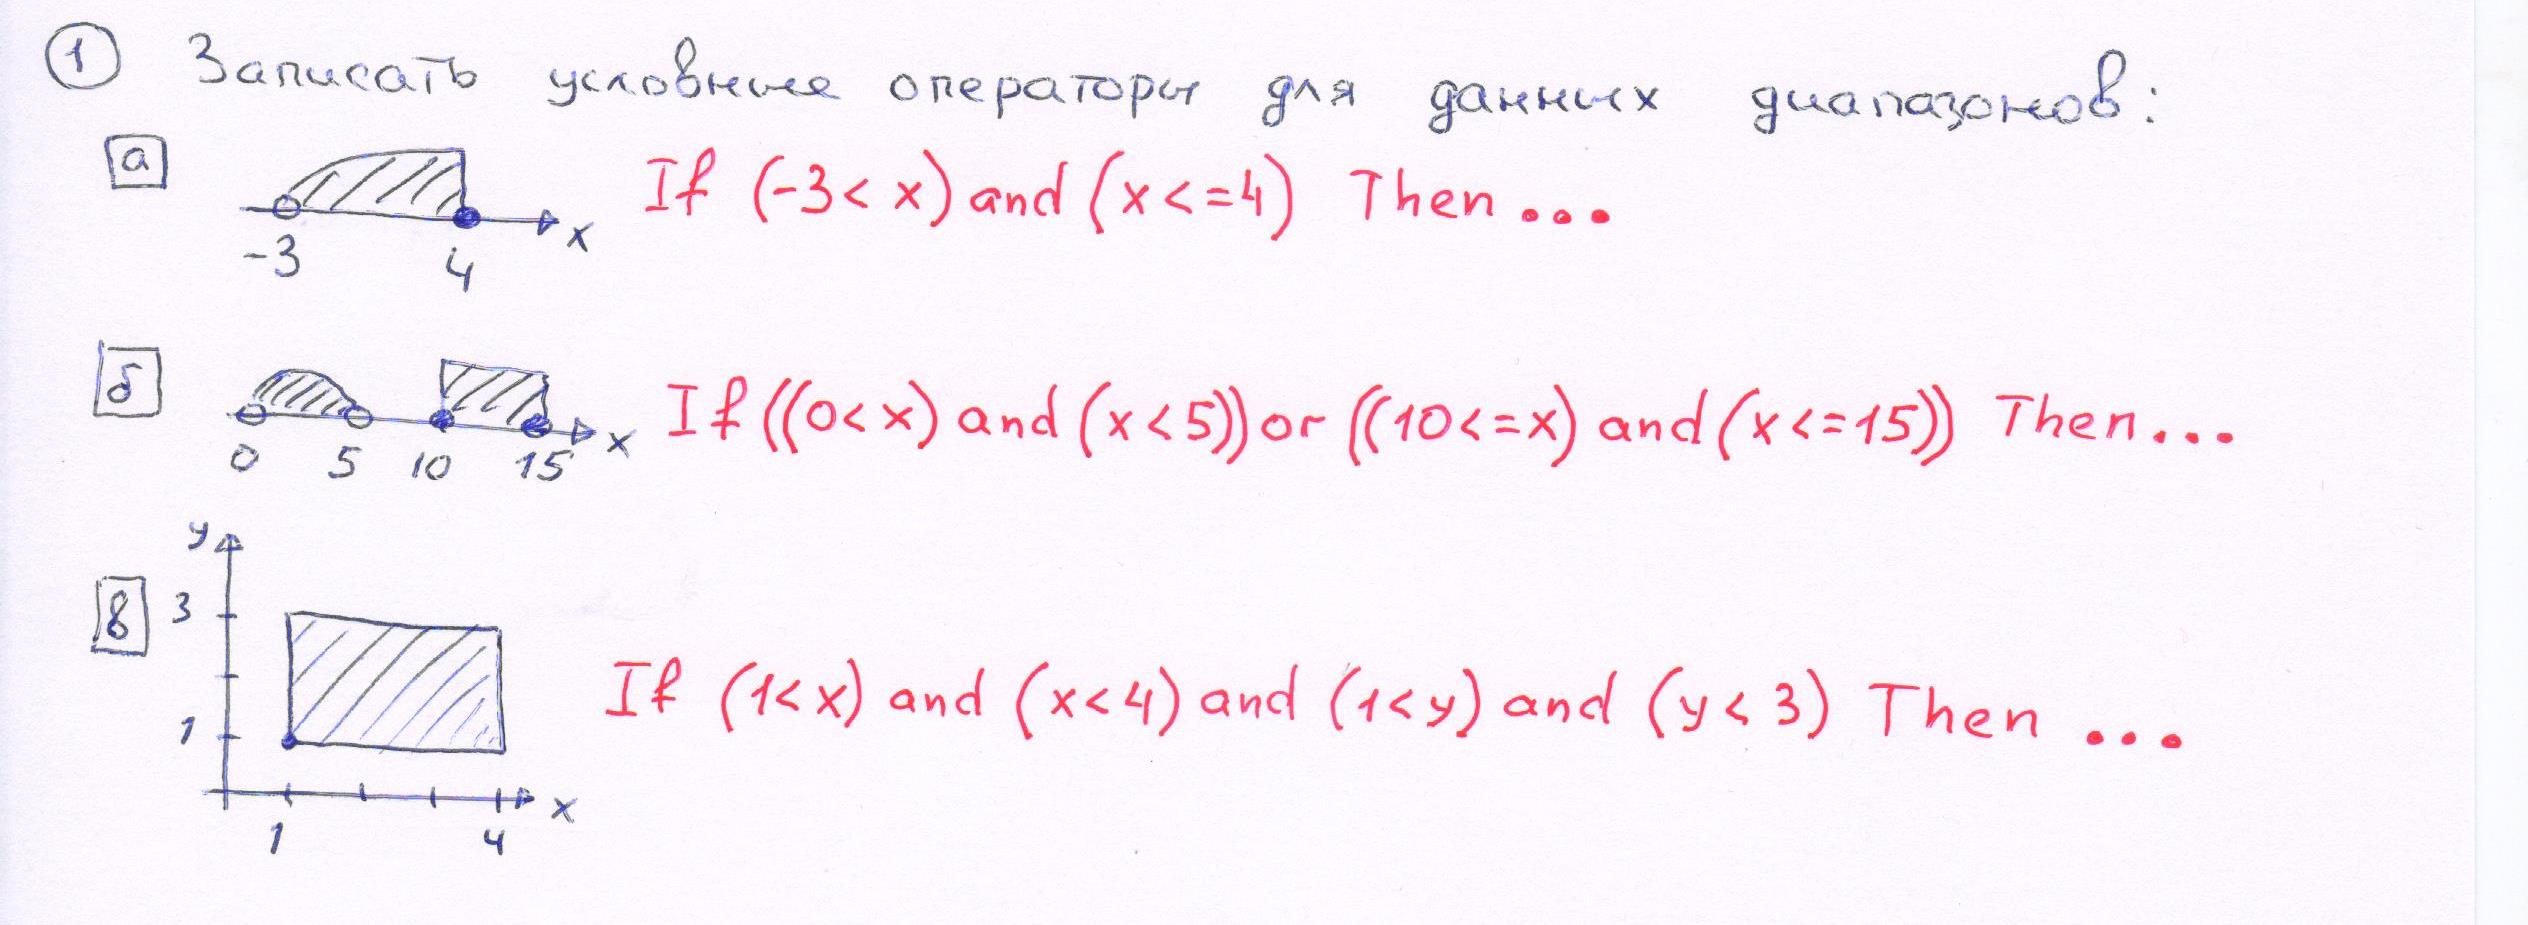 1 Записать условные операторы для данных диапазонов:
а
-3 4 x
If (-3 < x) and (x <= 4) Then ...
б
0 5 10 15 x
If ((0 < x) and (x < 5)) or ((10 <= x) and (x <= 15)) Then ...
y
в 3
1
If (1 < x) and (x < 4) and (1 < y) and (y < 3) Then ...
x
1 4